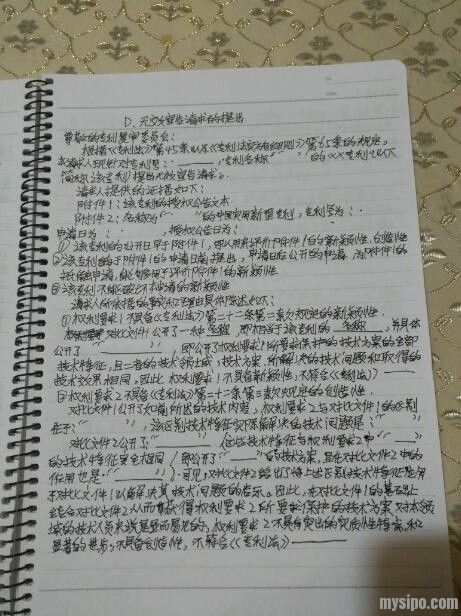 D、无效宣告请求的提出
尊敬的专利复审委员会：
根据《专利法》第45条以及《专利法实施细则》第65条的规定，
本请求人现针对专利号：____，专利名称"____"的××专利（以下
简称该专利）提出无效宣告请求。
请求人提供的证据如下：
附件1：该专利的授权公告文本
附件2：名称为"　"的中国实用新型专利，专利号为：
申请日为：　，授权公告日为：
①该专利的公开日早于附件1，可以用来评价附件1的新颖性、创造性
②该专利的于附件1的申请日前提出，申请日后公开的申请，为附件1的
抵触申请，能够用于评价附件1的新颖性
③该专利不能破坏本申请的新颖性
请求人所依据的事实和理由具体陈述如下：
①权利要求1不具备《专利法》第二十二条第二款规定的新颖性
对比文件1公开了一种 名称，即相当于该专利的 名称____，并具体
公开了____（____），即公开了权利要求1所要求保护的技术方案的全部
技术特征，且二者的技术领域、技术方案、所解决的技术问题和取得的
技术效果相同，因此，权利要求1不具有新颖性，不符合《专利法》____
②权利要求2不具备《专利法》第二十二条第三款规定的创造性
对比文件1公开了如前所述的技术内容，权利要求2与对比文件1的区别
在于："____"，该区别技术特征实际解决的技术问题是："____"
对比文件2公开了"____"（这些技术特征与权利要求2中"____"
的技术特征完全相同（即公开了"____"的技术方案，且在对比文件2中的
作用也是："____"）可见，对比文件2给出了将上述区别技术特征应用
于对比文件1以解决其技术问题的启示，因此，在对比文件1的基础上
结合对比文件2从而获得权利要求2所要求保护的技术方案对本领
域的技术人员来说是显而易见的，权利要求2不具有突出的实质性特点和
显著的进步，不具备创造性，不符合《专利法》____
mysipo.com